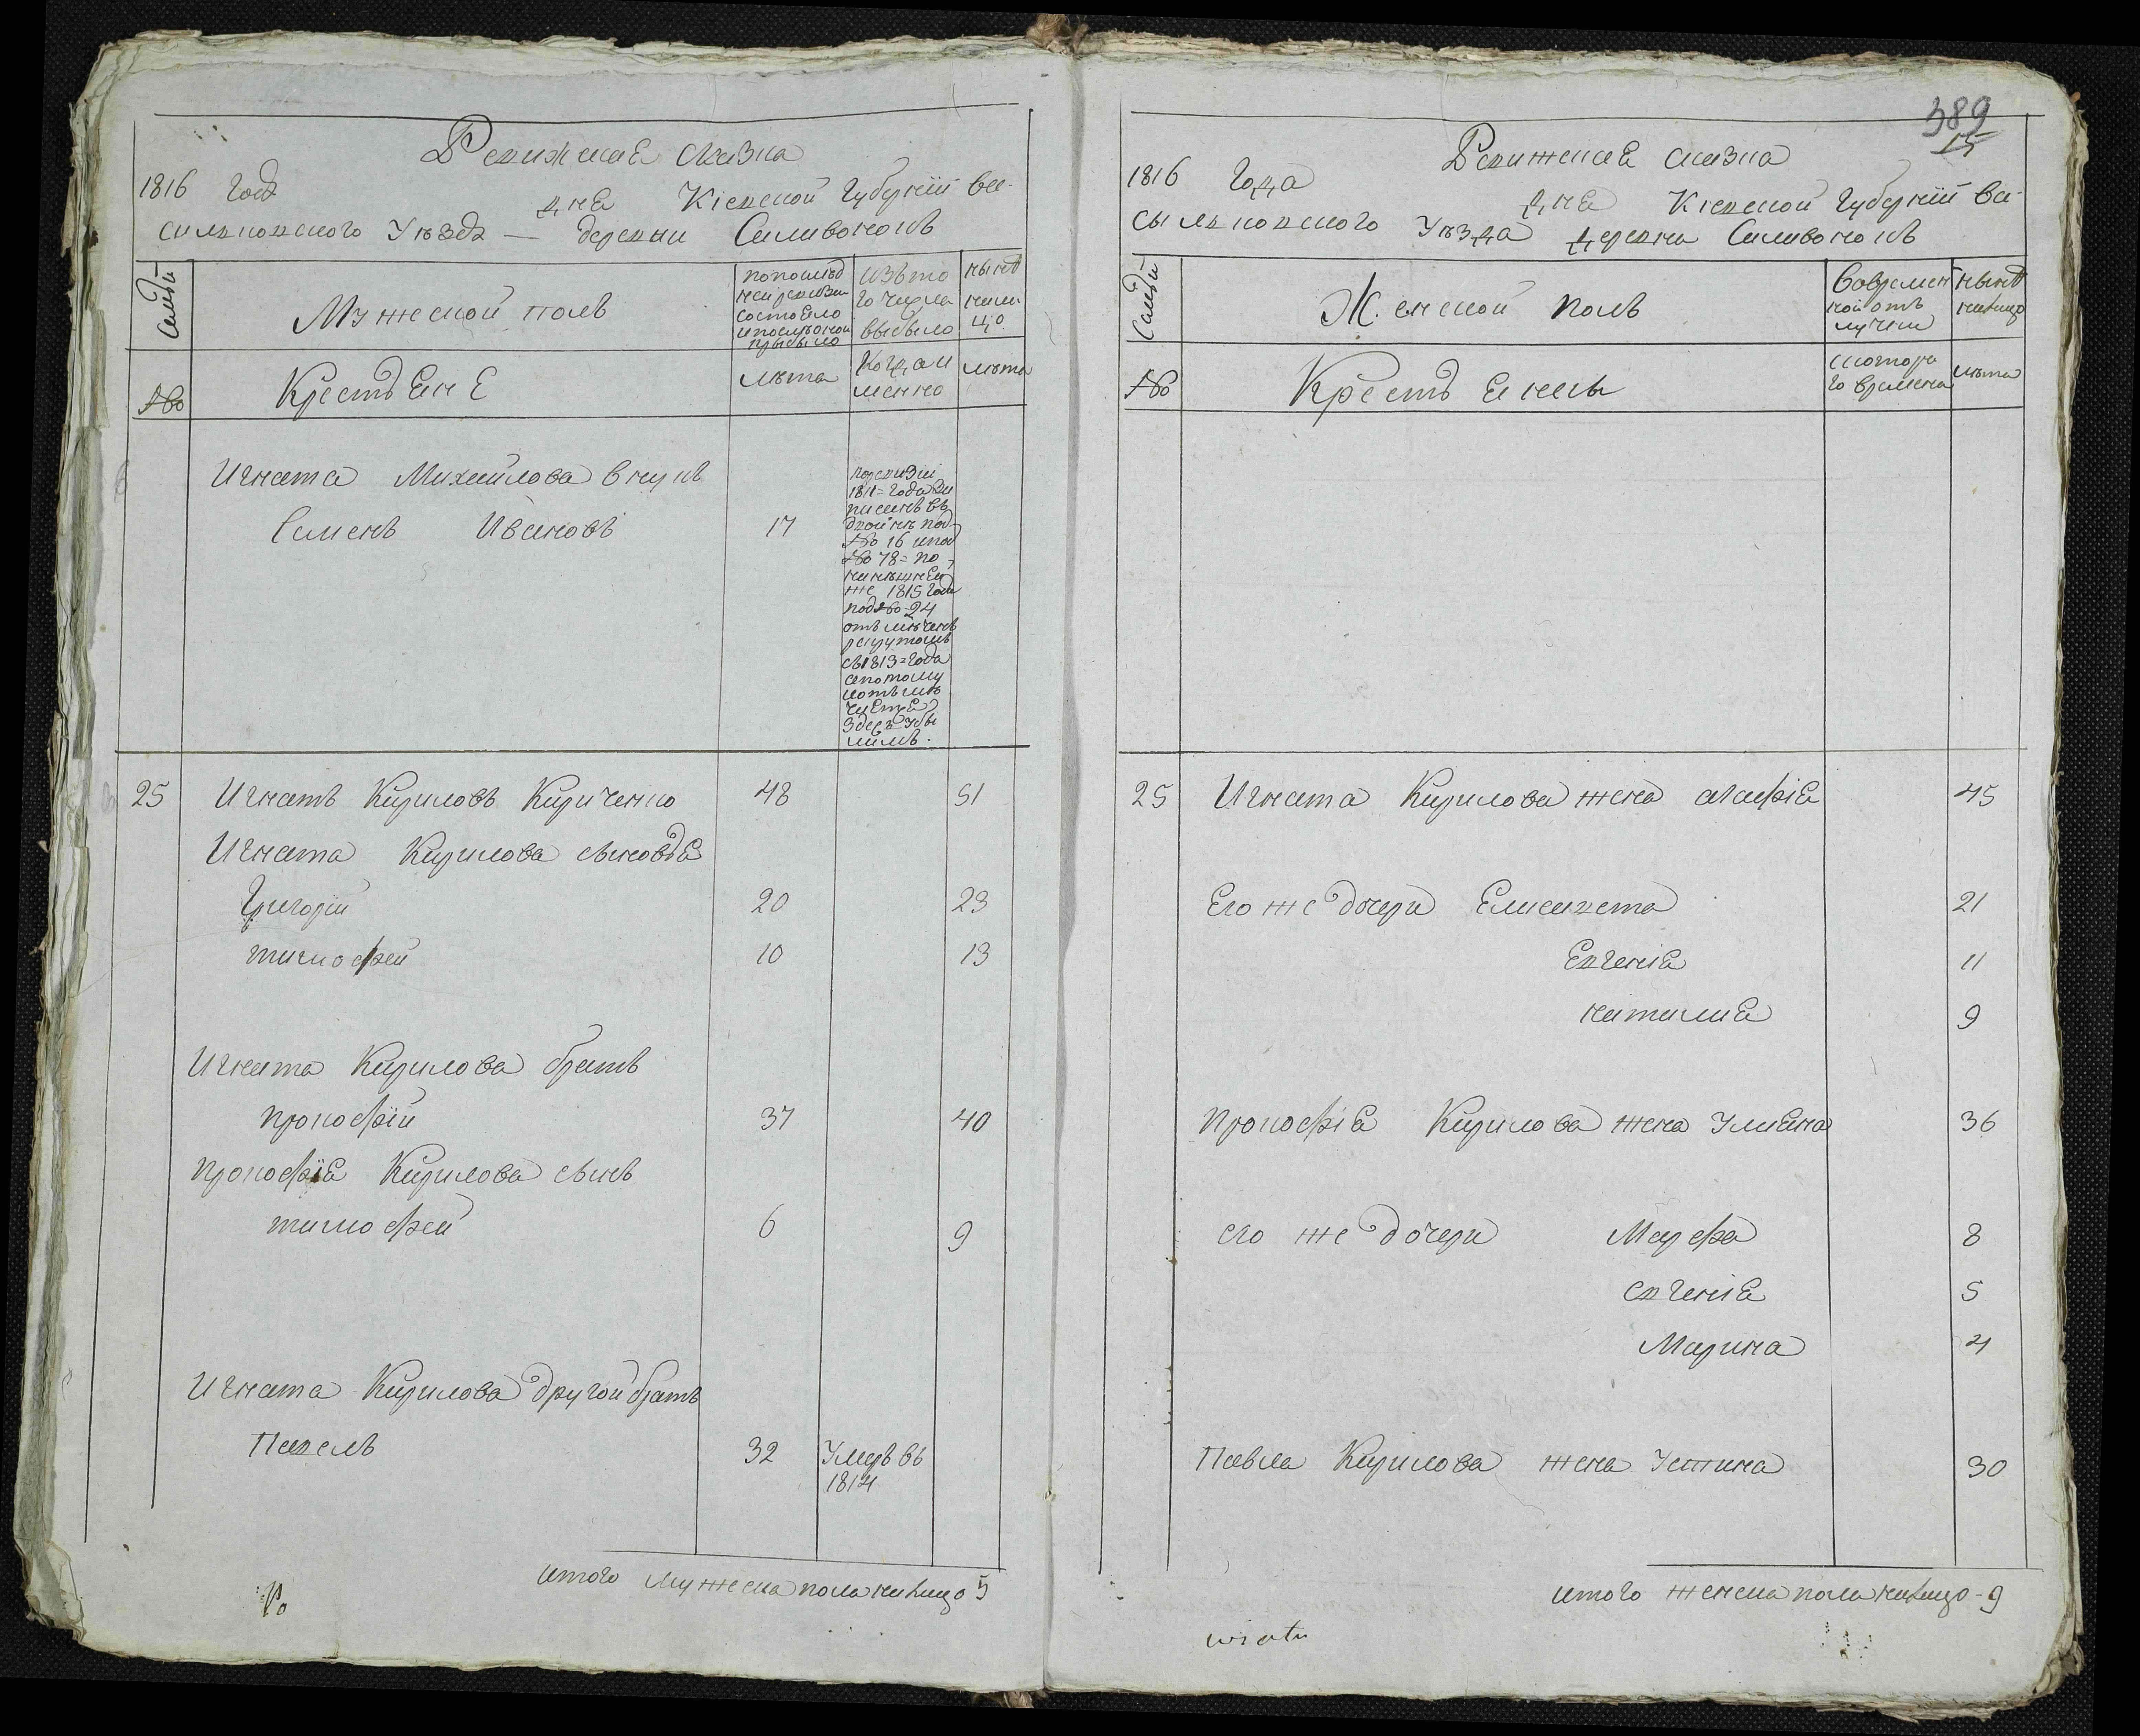 Ревижская сказка
1816 года дня Кіевской Губерніи Ва-
силковского Уѣзда — деревни Саливонокъ
Семьи
Мужеской полъ
по послѣд
ней ревизіи
состояло
и после оной
прибыло
изъ то
го числа
выбыло
нынѣ
на ли
цо
№
Крестьяне
лѣта
когда и
менно
лѣта
Игната Михайлова внукъ
Семенъ Ивановъ 17
по ревизіи
1811 = года за
писанъ въ
двойнѣ под
№ 16 и под
№ 78 = по
нинѣшней
же 1815 года
под № 24
отъмѣченъ
рекрутомъ
съ 1813 = года
а по тому
и отъмѣ
чаетца
здесь убы
лимъ.
25 Игнатъ Кириловъ Кириченко 48 51
Игната Кирилова сыновья
Григорій 20 23
тимофей 10 13
Игната Кирилова братъ
прокофій 37 40
прокофія Кирилова сынъ
тимофей 6 9
Игната Кирилова другой братъ
Павелъ 32 Умеръ въ
1814
итого мужеска пола налицо 5
389
15
Ревижская сказка
1816 года дня Кіевской Губерніи Ва-
сылковского Уѣзда деревни Саливонокъ
Семьи
Женской полъ
Вовремен
ной отъ
лучки
нынѣ
налицо
№
Крестьянки
с котора
го времени
лѣта
25 Игната Кирилова жена агафія 45
Его же дочери Елисавета 21
Евгенія 11
наталия 9
прокофія Кирилова жена Улияна 36
его же дочери Марфа 8
евгенія 5
Марина 4
Павла Кирилова жена Устина 30
итого женска пола налицо - 9